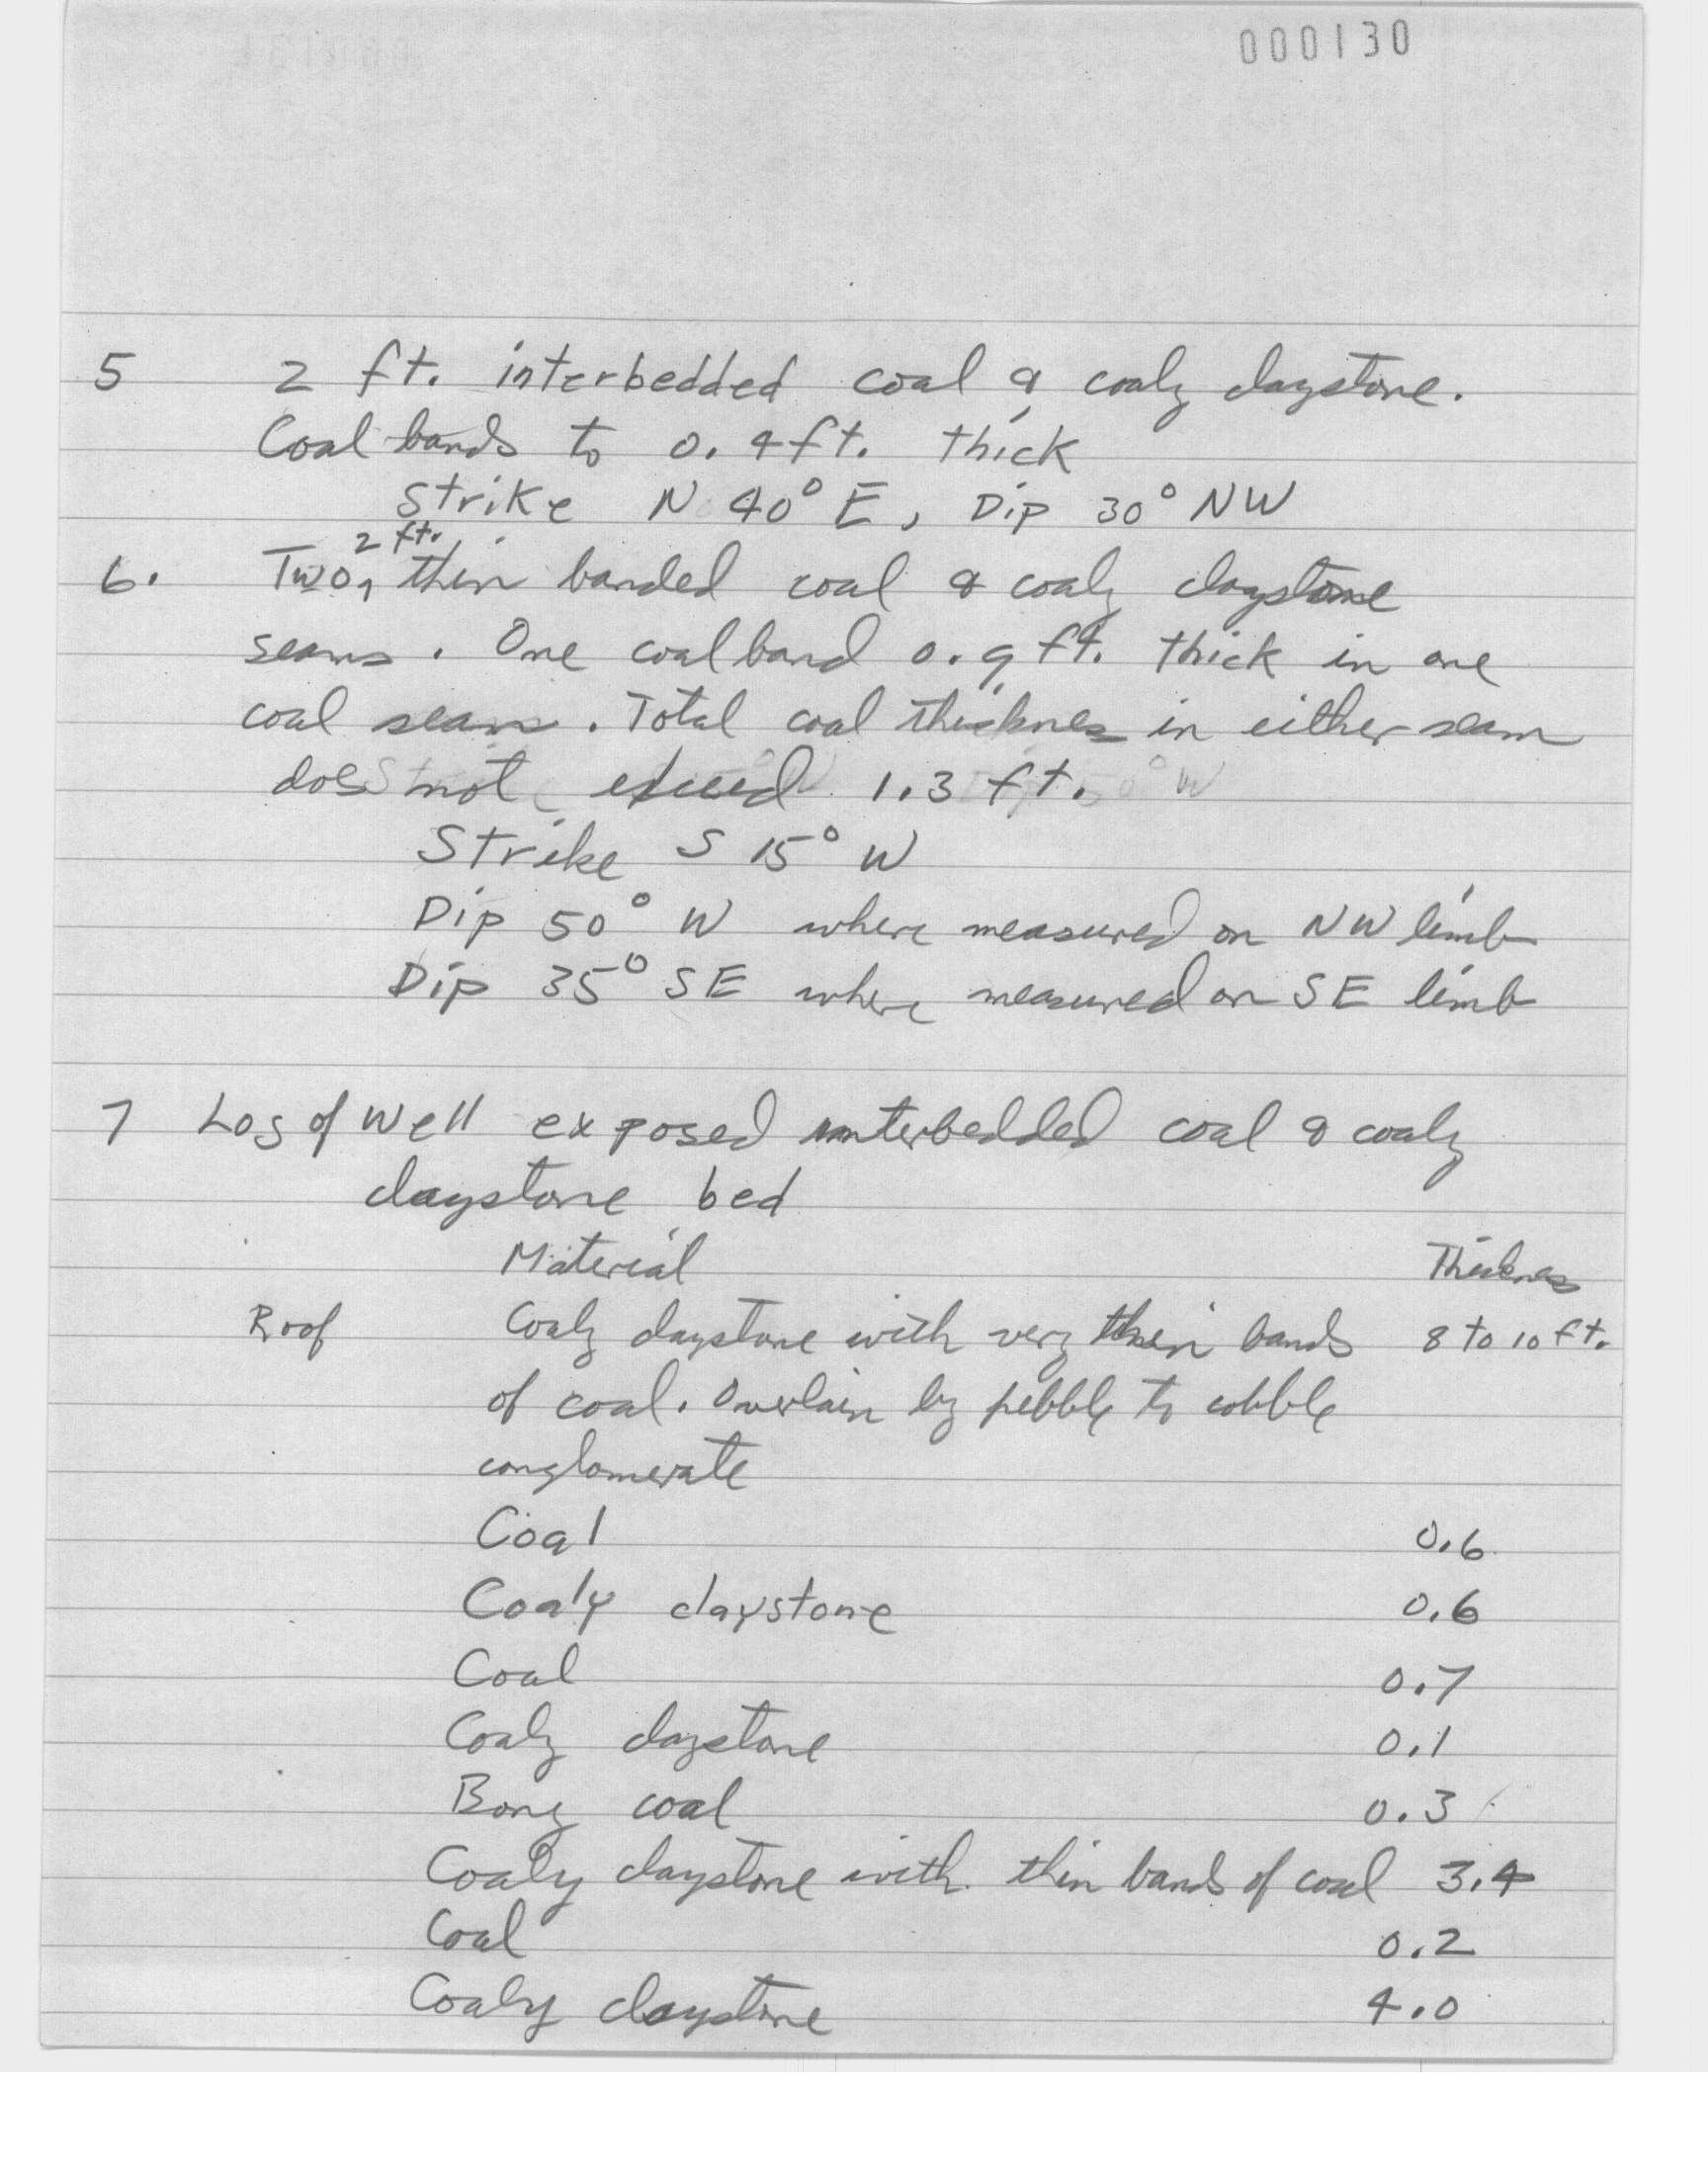 000130
5 2 ft. interbedded coal & coaly claystone.
Coal bands to 0.4 ft. thick
Strike N 40° E, Dip 30° NW
2 ft.
6. Two, thin banded coal & coaly claystone
seams. One coal band 0.9 ft. thick in one
coal seam. Total coal thickness in either seam
does not exceed 1.3 ft.
Strike S 15° W
Dip 50° W where measured on NW limb
Dip 35° SE where measured on SE limb
7 Log of Well exposed interbedded coal & coaly
claystone bed
Material Thickness
Roof Coaly claystone with very thin bands 8 to 10 ft.
of coal. Overlain by pebble to cobble
conglomerate
Coal 0.6
Coaly claystone 0.6
Coal 0.7
Coaly claystone 0.1
Bony coal 0.3
Coaly claystone with thin bands of coal 3.4
Coal 0.2
Coaly claystone 4.0